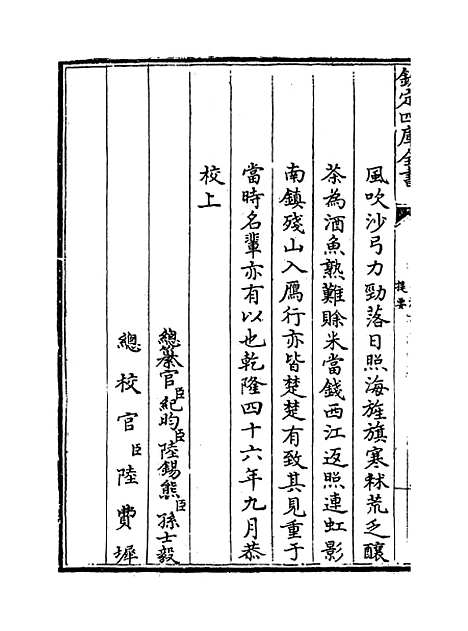 欽定四庫全書
提要
風吹沙弓力勁落日照海旌旗寒秫荒乏釀
茶為酒魚熟難賒米當錢西江返照連虹影
南鎮殘山入鴈行亦皆楚楚有致其見重于
當時名輩亦有以也乾隆四十六年九月恭
校上
總纂官臣紀昀臣陸錫熊臣孫士毅
總校官臣陸費墀